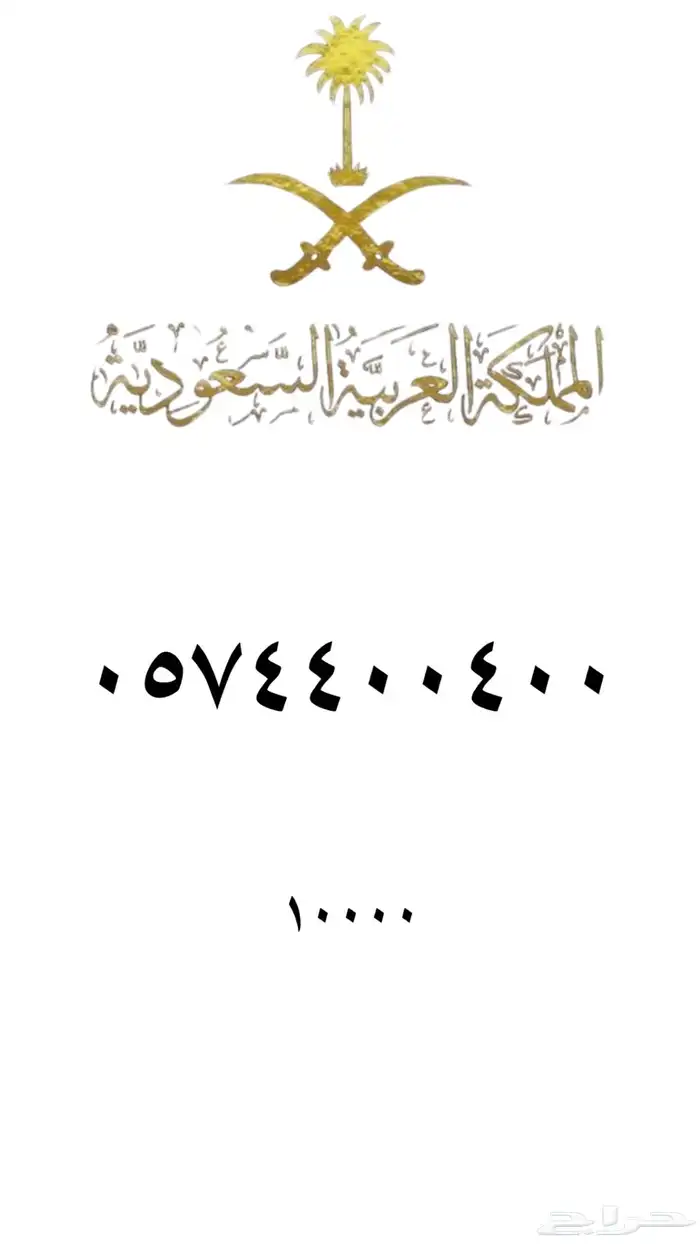 المملكة العربية السعودية
٠٥٧٤٤٠٠٤٠٠
١٠٠٠٠
حراج